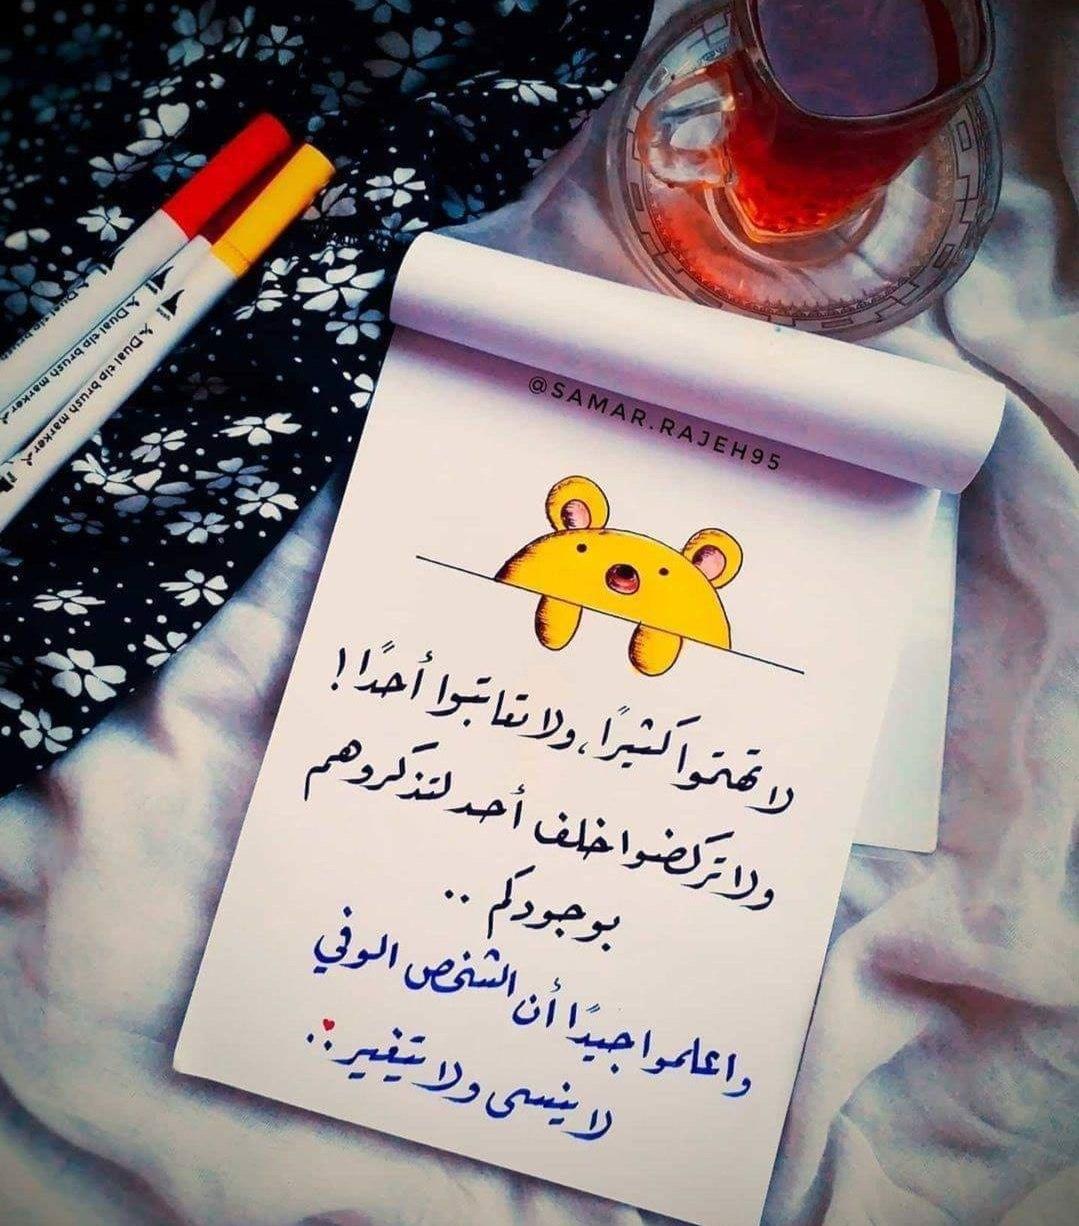 @SAMAR.RAJEH95
لا تهتموا كثيرًا، ولا تعاتبوا أحدًا!
ولا تركضوا خلف أحد لتذكروهم
بوجودكم ..
واعلموا جيدًا أن الشخص الوفي
لا ينسى ولا يتغير ..
Dual tip brush marker
Dual tip brush marker